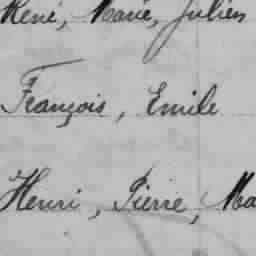 René, Marie, Julien
François, Emile
Henri, Pierre, Ma